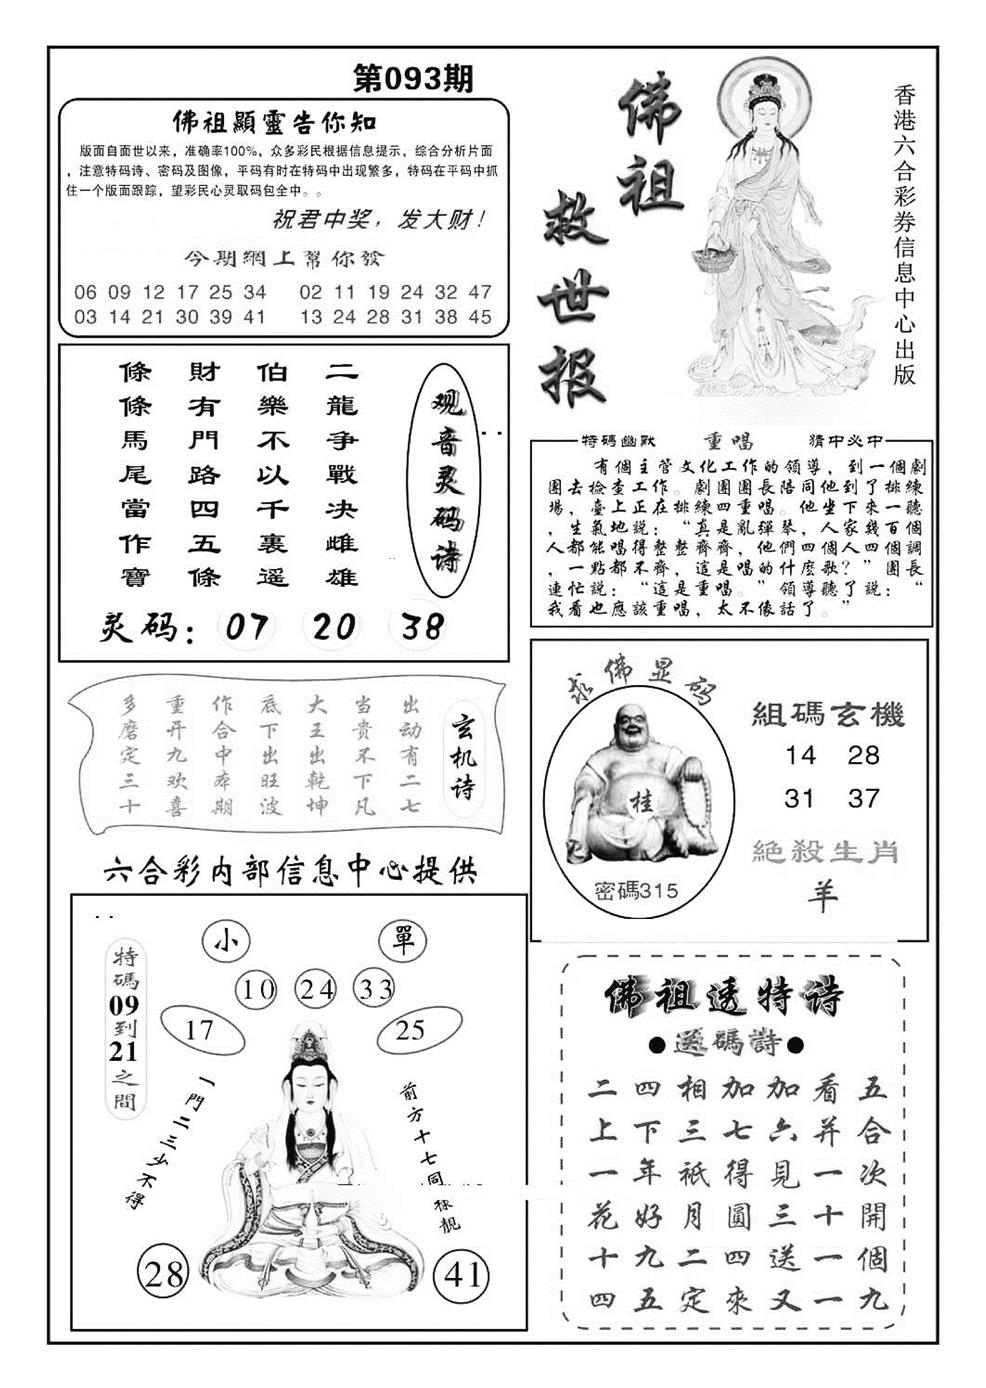 第093期
佛祖顯靈告你知
版面自面世以来，准确率100%，众多彩民根据信息提示，综合分析片面
，注意特码诗、密码及图像，平码有时在特码中出现繁多，特码在平码中抓
住一个版面跟踪，望彩民心灵取码包全中。。
祝君中奖，发大财！
今期網上幫你發
06 09 12 17 25 34 02 11 19 24 32 47
03 14 21 30 39 41 13 24 28 31 38 45
佛祖
救世报
香港六合彩券信息中心出版
观音灵码诗
二龍争戰决雌雄
伯樂不以千裏遥
財有門路四五條
條條馬尾當作寶
灵码：07 20 38
特碼幽默 重唱 猜中必中
有個主管文化工作的領導，到一個劇
團去檢查工作。劇團團長陪同他到了排練
場，臺上正在排練四重唱。他坐下來一聽
，生氣地說：“真是亂彈琴，人家幾百個
人都能唱得整整齊齊，他們四個人四個調
，一點都不齊，這是唱的什麽歌？”團長
連忙説：“這是重唱。”領導聽了説：“
我看也應該重唱，太不像話了。”
玄机诗
出动有二七
当贵不下凡
大王出乾坤
底下出旺波
作合中本期
重开九欢喜
多磨定三十
六合彩内部信息中心提供
求佛显码
桂
密碼315
組碼玄機
14 28
31 37
絕殺生肖
羊
特碼09到21之間
小 單
10 24 33
17 25
一門二三少不得
前方十七同樣靚
28 41
佛祖透特诗
●送碼詩●
五合次開個九
看并一十一一
加六見三送又
加七得圓四來
相三祇月二定
四下年好九五
二上一花十四